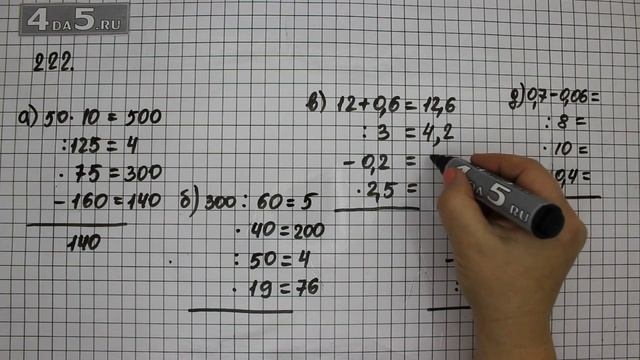 4DA5.RU
222.
а) 50 · 10 = 500
: 125 = 4
· 75 = 300
- 160 = 140
140
б) 300 : 60 = 5
· 40 = 200
: 50 = 4
· 19 = 76
в) 12 + 0,6 = 12,6
: 3 = 4,2
- 0,2 =
· 2,5 =
д) 0,7 - 0,06 =
: 8 =
· 10 =
0,4 =
-
:
4DA5.RU